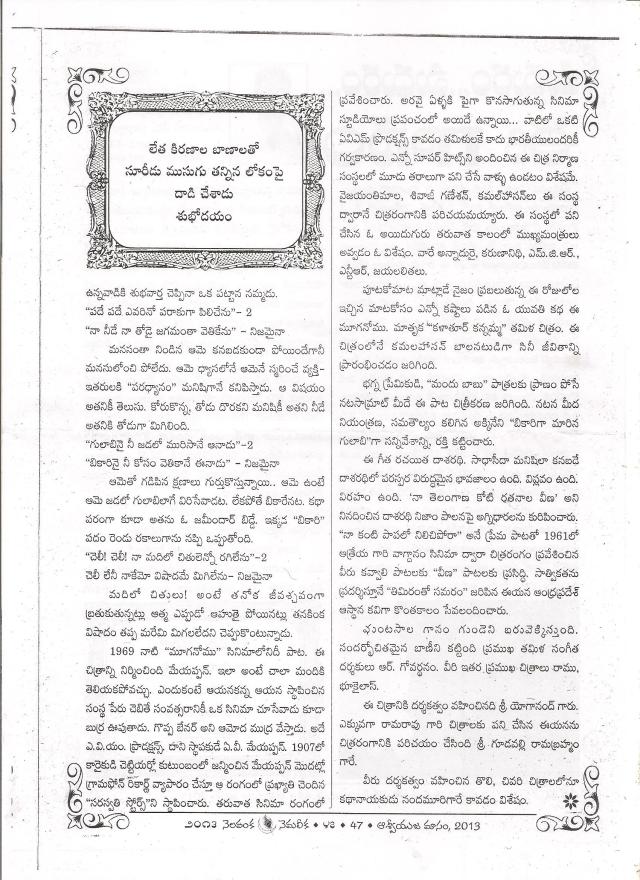 లేత కిరణాల బాణాలతో
సూరీడు ముసుగు తన్నిన లోకంపై
దాడి చేశాడు
శుభోదయం
ఉన్నవాడికి శుభవార్త చెప్పినా ఒక పట్టాన నమ్మడు.
"పదే పదే ఎవరినో పరాకుగా పిలిచేను" - 2
"నా నీడే నా తోడై జగమంతా వెతికేను" - నిజమైనా
మనసంతా నిండిన ఆమె కనబడకుండా పోయిందేగానీ
మనసులోంచి పోలేదు. ఆమె ధ్యానంలోనే ఆమెనే స్మరించే వ్యక్తి-
ఇతరులకి "పరధ్యానం" మనిషిగానే కనిపిస్తాడు. ఆ విషయం
అతనికీ తెలుసు. కోరుకొన్న తోడు దొరకని మనిషికీ అతని నీడే
అతనికి తోడుగా మిగిలింది.
"గులాబినై నీ జడలో మురిసానే ఆనాడు"-2
"బికారినై నీ కోసం వెతికానే ఈనాడు" - నిజమైనా
ఆమెతో గడిపిన క్షణాలు గుర్తుకొస్తున్నాయి.. ఆమె ఉంటే
ఆమె జడలో గులాబిలాగే విరిసేవాడట. లేకపోతే బికారేనట. కథా
పరంగా కూడా అతను ఓ జమీందార్ బిడ్డే. ఇక్కడ "బికారి"
పదం రెండు రకాలుగాను నప్పి ఒప్పుతోంది.
"చెలీ! చెలీ! నా మదిలో చితులెన్నో రగిలేను"-2
చెలీ లేనీ నాకేమో విషాదమే మిగిలేను- నిజమైనా
మదిలో చితులు! అంటే తనొక జీవచ్ఛవంగా
బ్రతుకుతున్నట్లు ఆత్మ ఎప్పుడో ఆహుతై పోయినట్లు తనకింక
విషాదం తప్ప మరేమి మిగలలేదని చెప్పుకొంటున్నాడు.
1969 నాటి "మూగనోము" సినిమాలోనిదీ పాట. ఈ
చిత్రాన్ని నిర్మించింది మేయప్పన్. ఇలా అంటే చాలా మందికి
తెలియకపోవచ్చు. ఎందుకంటే ఆయనకన్న ఆయన స్థాపించిన
సంస్థ పేరు చెబితే సంవత్సరానికీ ఒక సినిమా చూసేవాడు కూడ
బుర్ర ఊపుతాడు. గొప్ప బేనర్ అని ఆమోద ముద్ర వేస్తాడు. అదే
ఎ.వి.యం. ప్రొడక్షన్స్. దాని స్థాపకుడే ఏ.వీ. మేయప్పన్. 1907లో
కారైకుడి చెట్టియార్ల కుటుంబంలో జన్మించిన మేయప్పన్ మొదట్లో
గ్రామఫోన్ రికార్డ్ వ్యాపారం చేస్తూ ఆ రంగంలో ప్రఖ్యాతి చెందిన
"సరస్వతి స్టోర్స్"ని స్థాపించారు. తరువాత సినిమా రంగంలో
ప్రవేశించారు. అరవై ఏళ్ళకి పైగా కొనసాగుతున్న సినిమా
స్టూడియోలు ప్రపంచంలో అయిదే ఉన్నాయి... వాటిలో ఒకటి
ఏవిఎమ్ ప్రొడక్షన్స్ కావడం తమిళులకే కాదు భారతీయులందరికీ
గర్వకారణం. ఎన్నో సూపర్ హిట్స్‌ని అందించిన ఈ చిత్ర నిర్మాణ
సంస్థలలో మూడు తరాలుగా పని చేసే వాళ్ళు ఉండటం విశేషమే.
వైజయంతిమాల, శివాజీ గణేశన్, కమల్‌హాసన్‌లు ఈ సంస్థ
ద్వారానే చిత్రరంగానికి పరిచయమయ్యారు. ఈ సంస్థలో పని
చేసిన ఓ అయిదుగురు తరువాత కాలంలో ముఖ్యమంత్రులు
అవ్వడం ఓ విశేషం. వారే అన్నాదురై, కరుణానిధి, ఎమ్.జి.ఆర్.,
ఎన్టీఆర్, జయలలితలు.
పూటకోమాట మాట్లాడే నైజం ప్రబలుతున్న ఈ రోజులోల
ఇచ్చిన మాటకోసం ఎన్నో కష్టాలు పడిన ఓ యువతి కథ ఈ
మూగనోము. మాతృక "కళాతూర్ కన్నమ్మ" తమిళ చిత్రం. ఈ
చిత్రంలోనే కమలహాసన్ బాలనటుడిగా సినీ జీవితాన్ని
ప్రారంభించడం జరిగింది.
భగ్న ప్రేమికుడి, "మందు బాబు" పాత్రలకు ప్రాణం పోసే
నటసామ్రాట్ మీదే ఈ పాట చిత్రీకరణ జరిగింది. నటన మీద
నియంత్రణ, సమతౌల్యం కలిగిన అక్కినేని "బికారిగా మారిన
గులాబి"గా సన్నివేశాన్ని, రక్తి కట్టించారు.
ఈ గీత రచయిత దాశరథి. సాధాసీదా మనిషిలా కనబడే
దాశరథిలో పరస్పర విరుద్ధమైన భావజాలం ఉంది. విప్లవం ఉంది.
విరహం ఉంది. 'నా తెలంగాణ కోటి రతనాల వీణ' అని
నినదించిన దాశరథి నిజాం పాలనపై అగ్నిధారలను కురిపించారు.
"నా కంటి పాపలో నిలిచిపోరా" అనే ప్రేమ పాటతో 1961లో
ఆత్రేయ గారి వాగ్దానం సినిమా ద్వారా చిత్రరంగం ప్రవేశించిన
వీరు కవ్వాలి పాటలకు "వీణ" పాటలకు ప్రసిద్ధి. సాత్వికతను
ప్రదర్శిస్తూనే "తిమిరంతో సమరం" జరిపిన ఈయన ఆంధ్రప్రదేశ్
ఆస్థాన కవిగా కొంతకాలం సేవలందించారు.
ఘంటసాల గానం గుండెని బరువెక్కిస్తుంది.
సందర్భోచితమైన బాణీని కట్టింది ప్రముఖ తమిళ సంగీత
దర్శకులు ఆర్. గోవర్థనం. వీరి ఇతర ప్రముఖ చిత్రాలు రాము,
భూకైలాస్.
ఈ చిత్రానికి దర్శకత్వం వహించినది శ్రీ యోగానంద్ గారు.
ఎక్కువగా రామారావు గారి చిత్రాలకు పని చేసిన ఈయనను
చిత్రరంగానికి పరిచయం చేసింది శ్రీ గూడవల్లి రామబ్రహ్మం
గారే.
వీరు దర్శకత్వం వహించిన తొలి, చివరి చిత్రాలలోనూ
కథానాయకుడు నందమూరిగారే కావడం విశేషం.
నెలవంక నెమలీక • 47 • ఆశ్వీయుజ మాసం, 2013